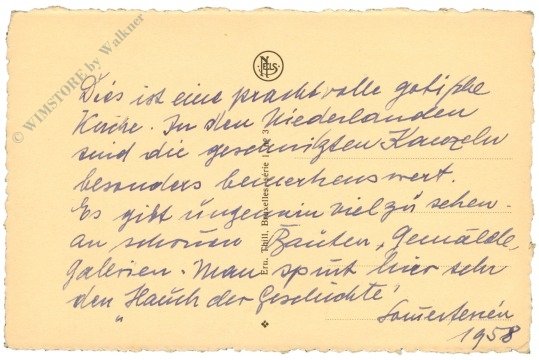 © WIMSTORE by Walkner
NELS
Dies ist eine prachtvolle gotische
Kirche. In den Niederlanden
sind die geschnitzten Kanzeln
besonders bemerkenswert.
Es gibt ungemein viel zu sehen -
an schönen Bauten, Gemälde-
galerien. Man spürt hier sehr
den „Hauch der Geschichte'
Sommerferien
1958
Ern. Thill, Bruxelles. Série 1, N° 3